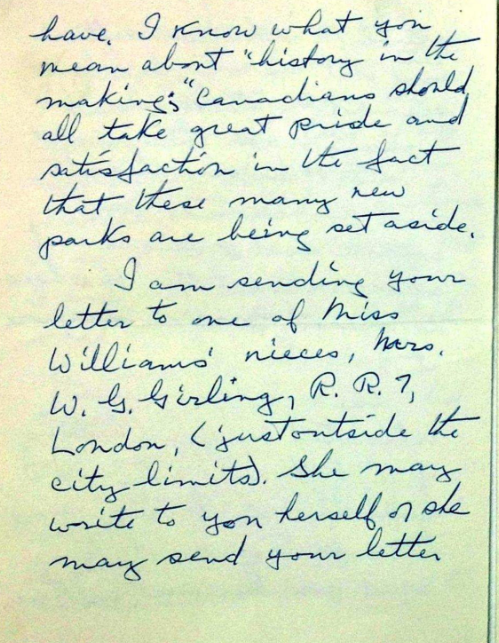 have. I know what you
mean about "history in the
making;" Canadians should
all take great pride and
satisfaction in the fact
that these many new
parks are being set aside.
I am sending your
letter to one of Miss
Williams' nieces, Mrs.
W. G. Girling, R. R. 7,
London, (just outside the
city limits). She may
write to you herself or she
may send your letter